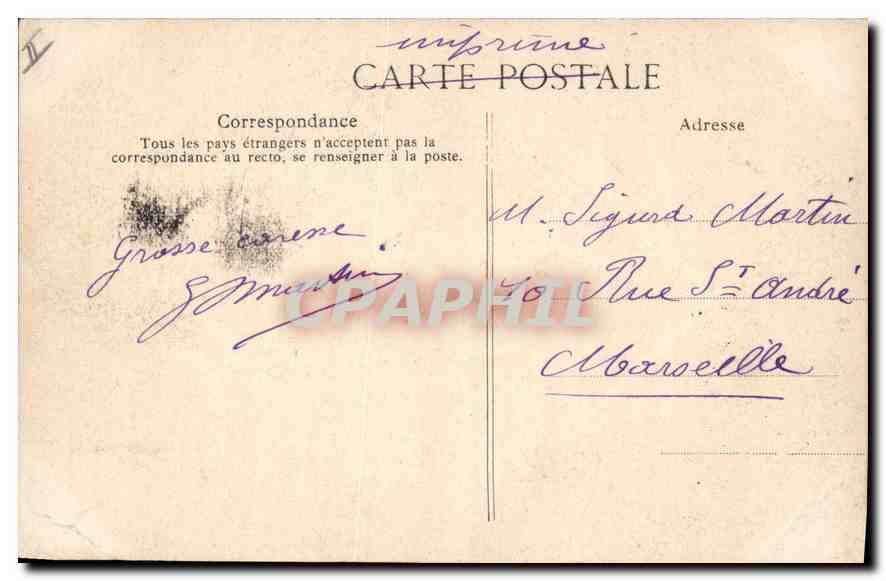 II
imprimé
CARTE POSTALE
Correspondance
Tous les pays étrangers n'acceptent pas la
correspondance au recto, se renseigner à la poste.
Grosse caresse
Martin
Adresse
M. Sigurd Martin
40 Rue St André
Marseille
CPAPHIL